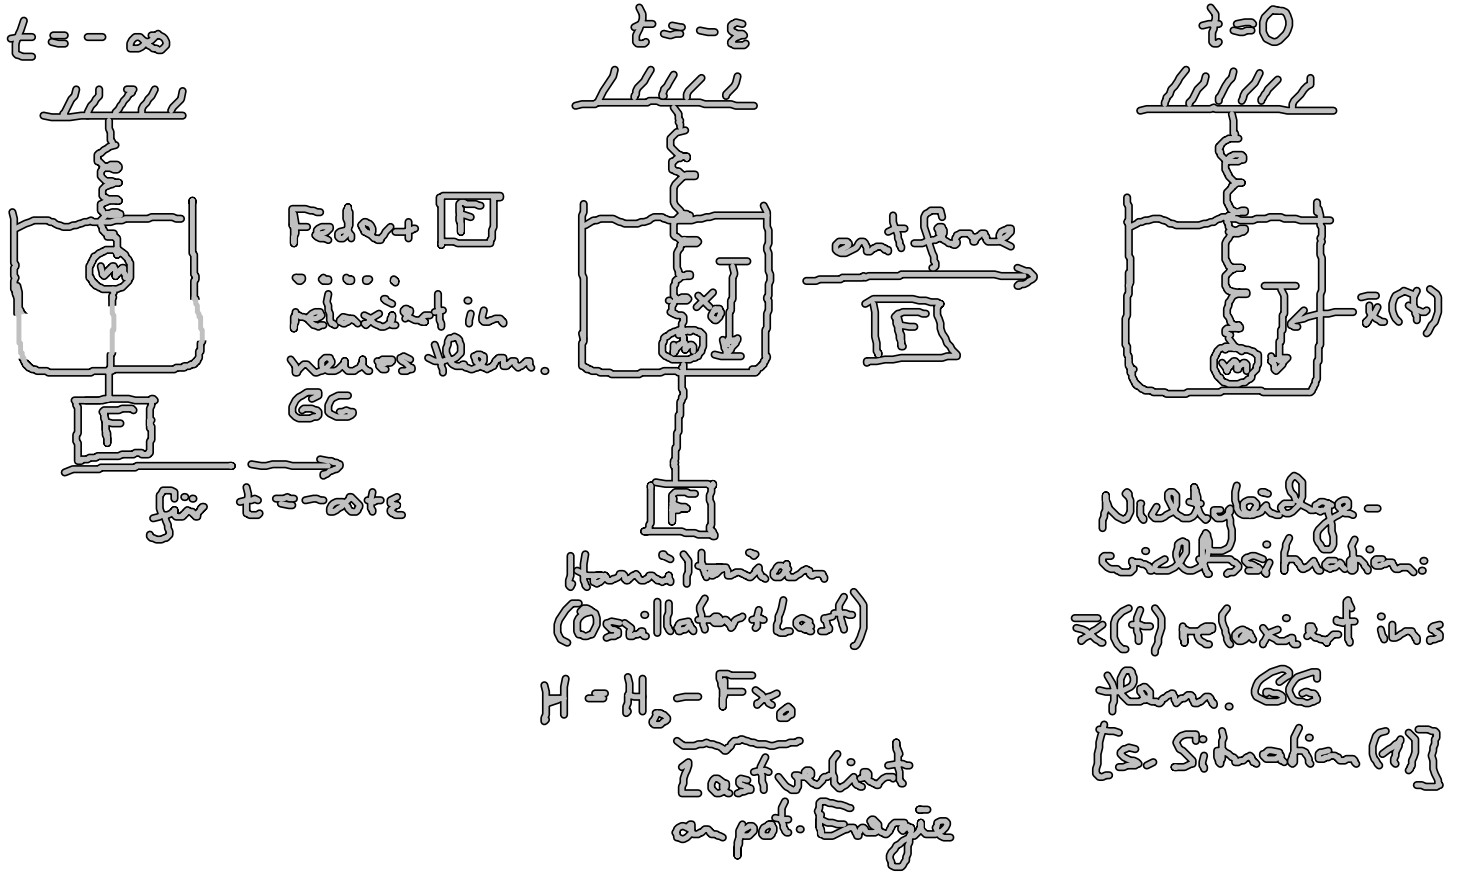 t = - ∞
t = - ε
t = 0
m
F
für t = -∞+ε
Feder + F
.....
relaxiert in
neues therm.
GG
x₀
m
F
Hamiltonian
(Oszillator + Last)
H = H₀ - Fx₀
Last verliert
an pot. Energie
entferne
F
x̄(t)
m
Nichtgleichge-
wichtssituation:
x̄(t) relaxiert ins
therm. GG
[s. Situation (1)]